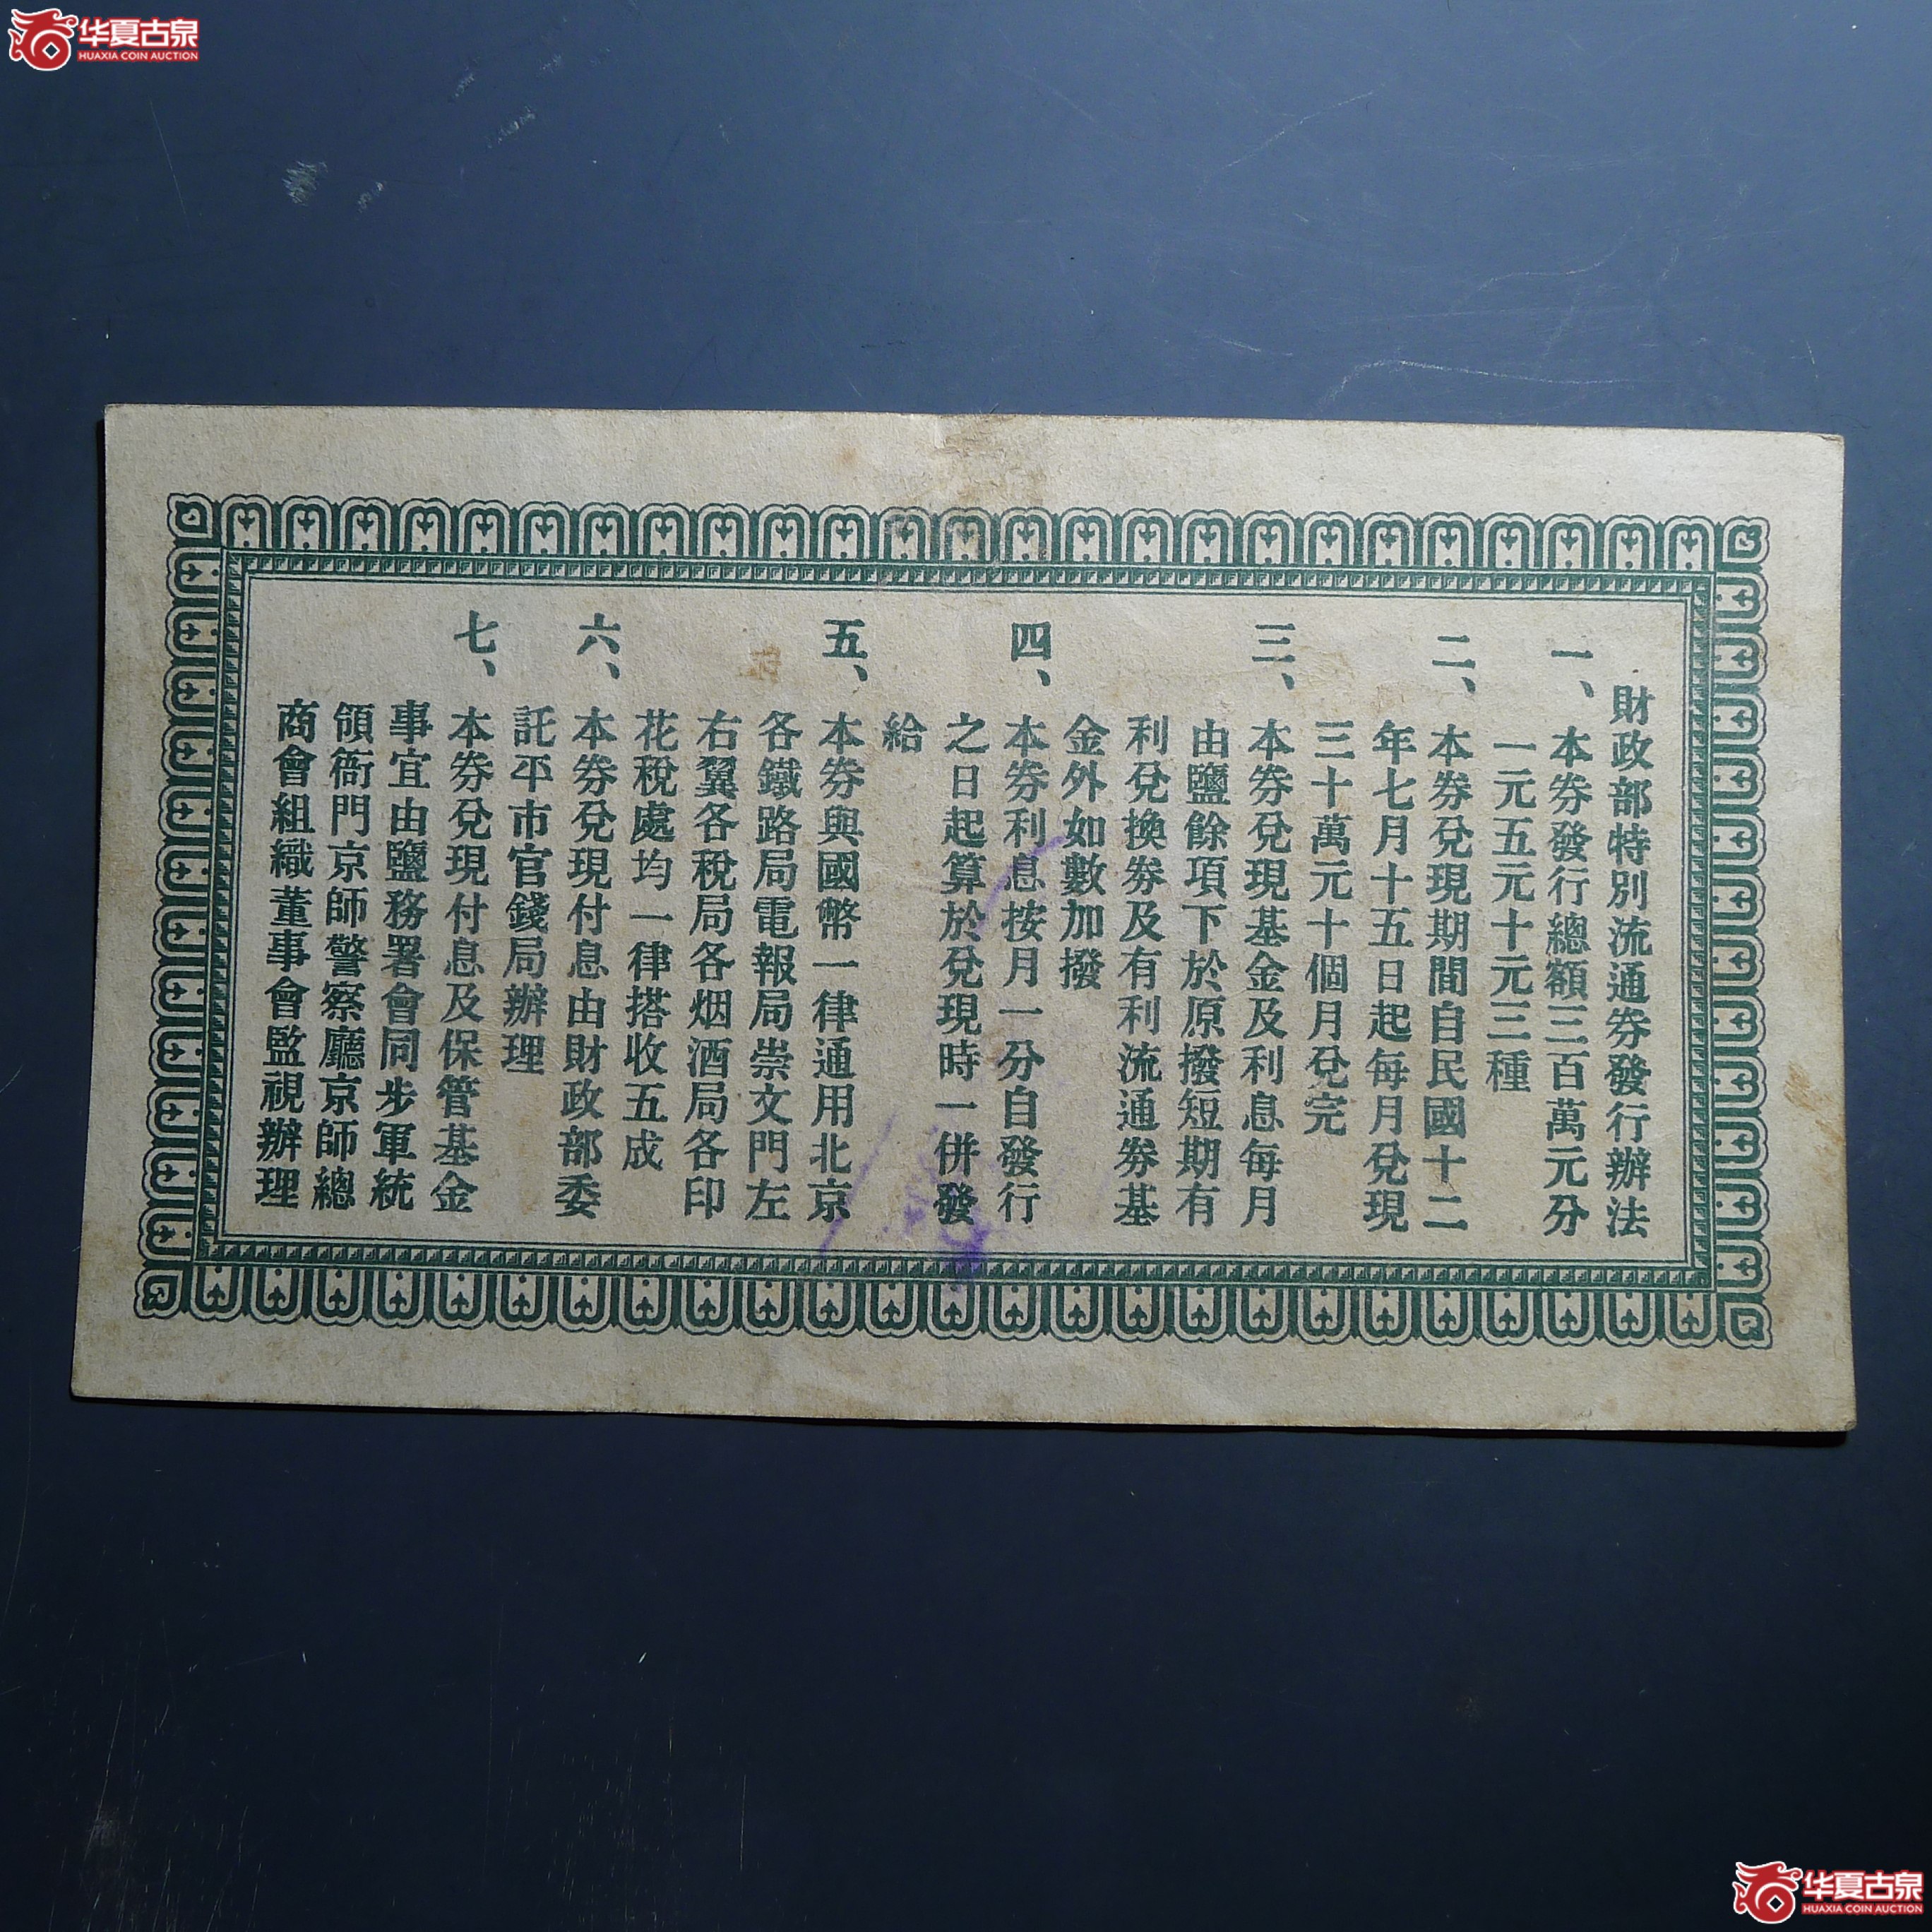 华夏古泉
HUAXIA COIN AUCTION
財政部特別流通券發行辦法
一、本券發行總額三百萬元分
一元五元十元三種
二、本券兌現期間自民國十二
年七月十五日起每月兌現
三十萬元十個月兌完
三、本券兌現基金及利息每月
由鹽餘項下於原撥短期有
利兌換券及有利流通券基
金外如數加撥
四、本券利息按月一分自發行
之日起算於兌現時一併發
給
五、本券與國幣一律通用北京
各鐵路局電報局崇文門左
右翼各稅局各烟酒局各印
花稅處均一律搭收五成
六、本券兌現付息由財政部委
託平市官錢局辦理
七、本券兌現付息及保管基金
事宜由鹽務署會同步軍統
領衙門京師警察廳京師總
商會組織董事會監視辦理
华夏古泉
HUAXIA COIN AUCTION